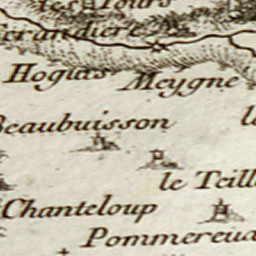 les Tours
erandiere
Hoguas Meygne
Beaubuisson
le Teill
Chanteloup
Pommereua